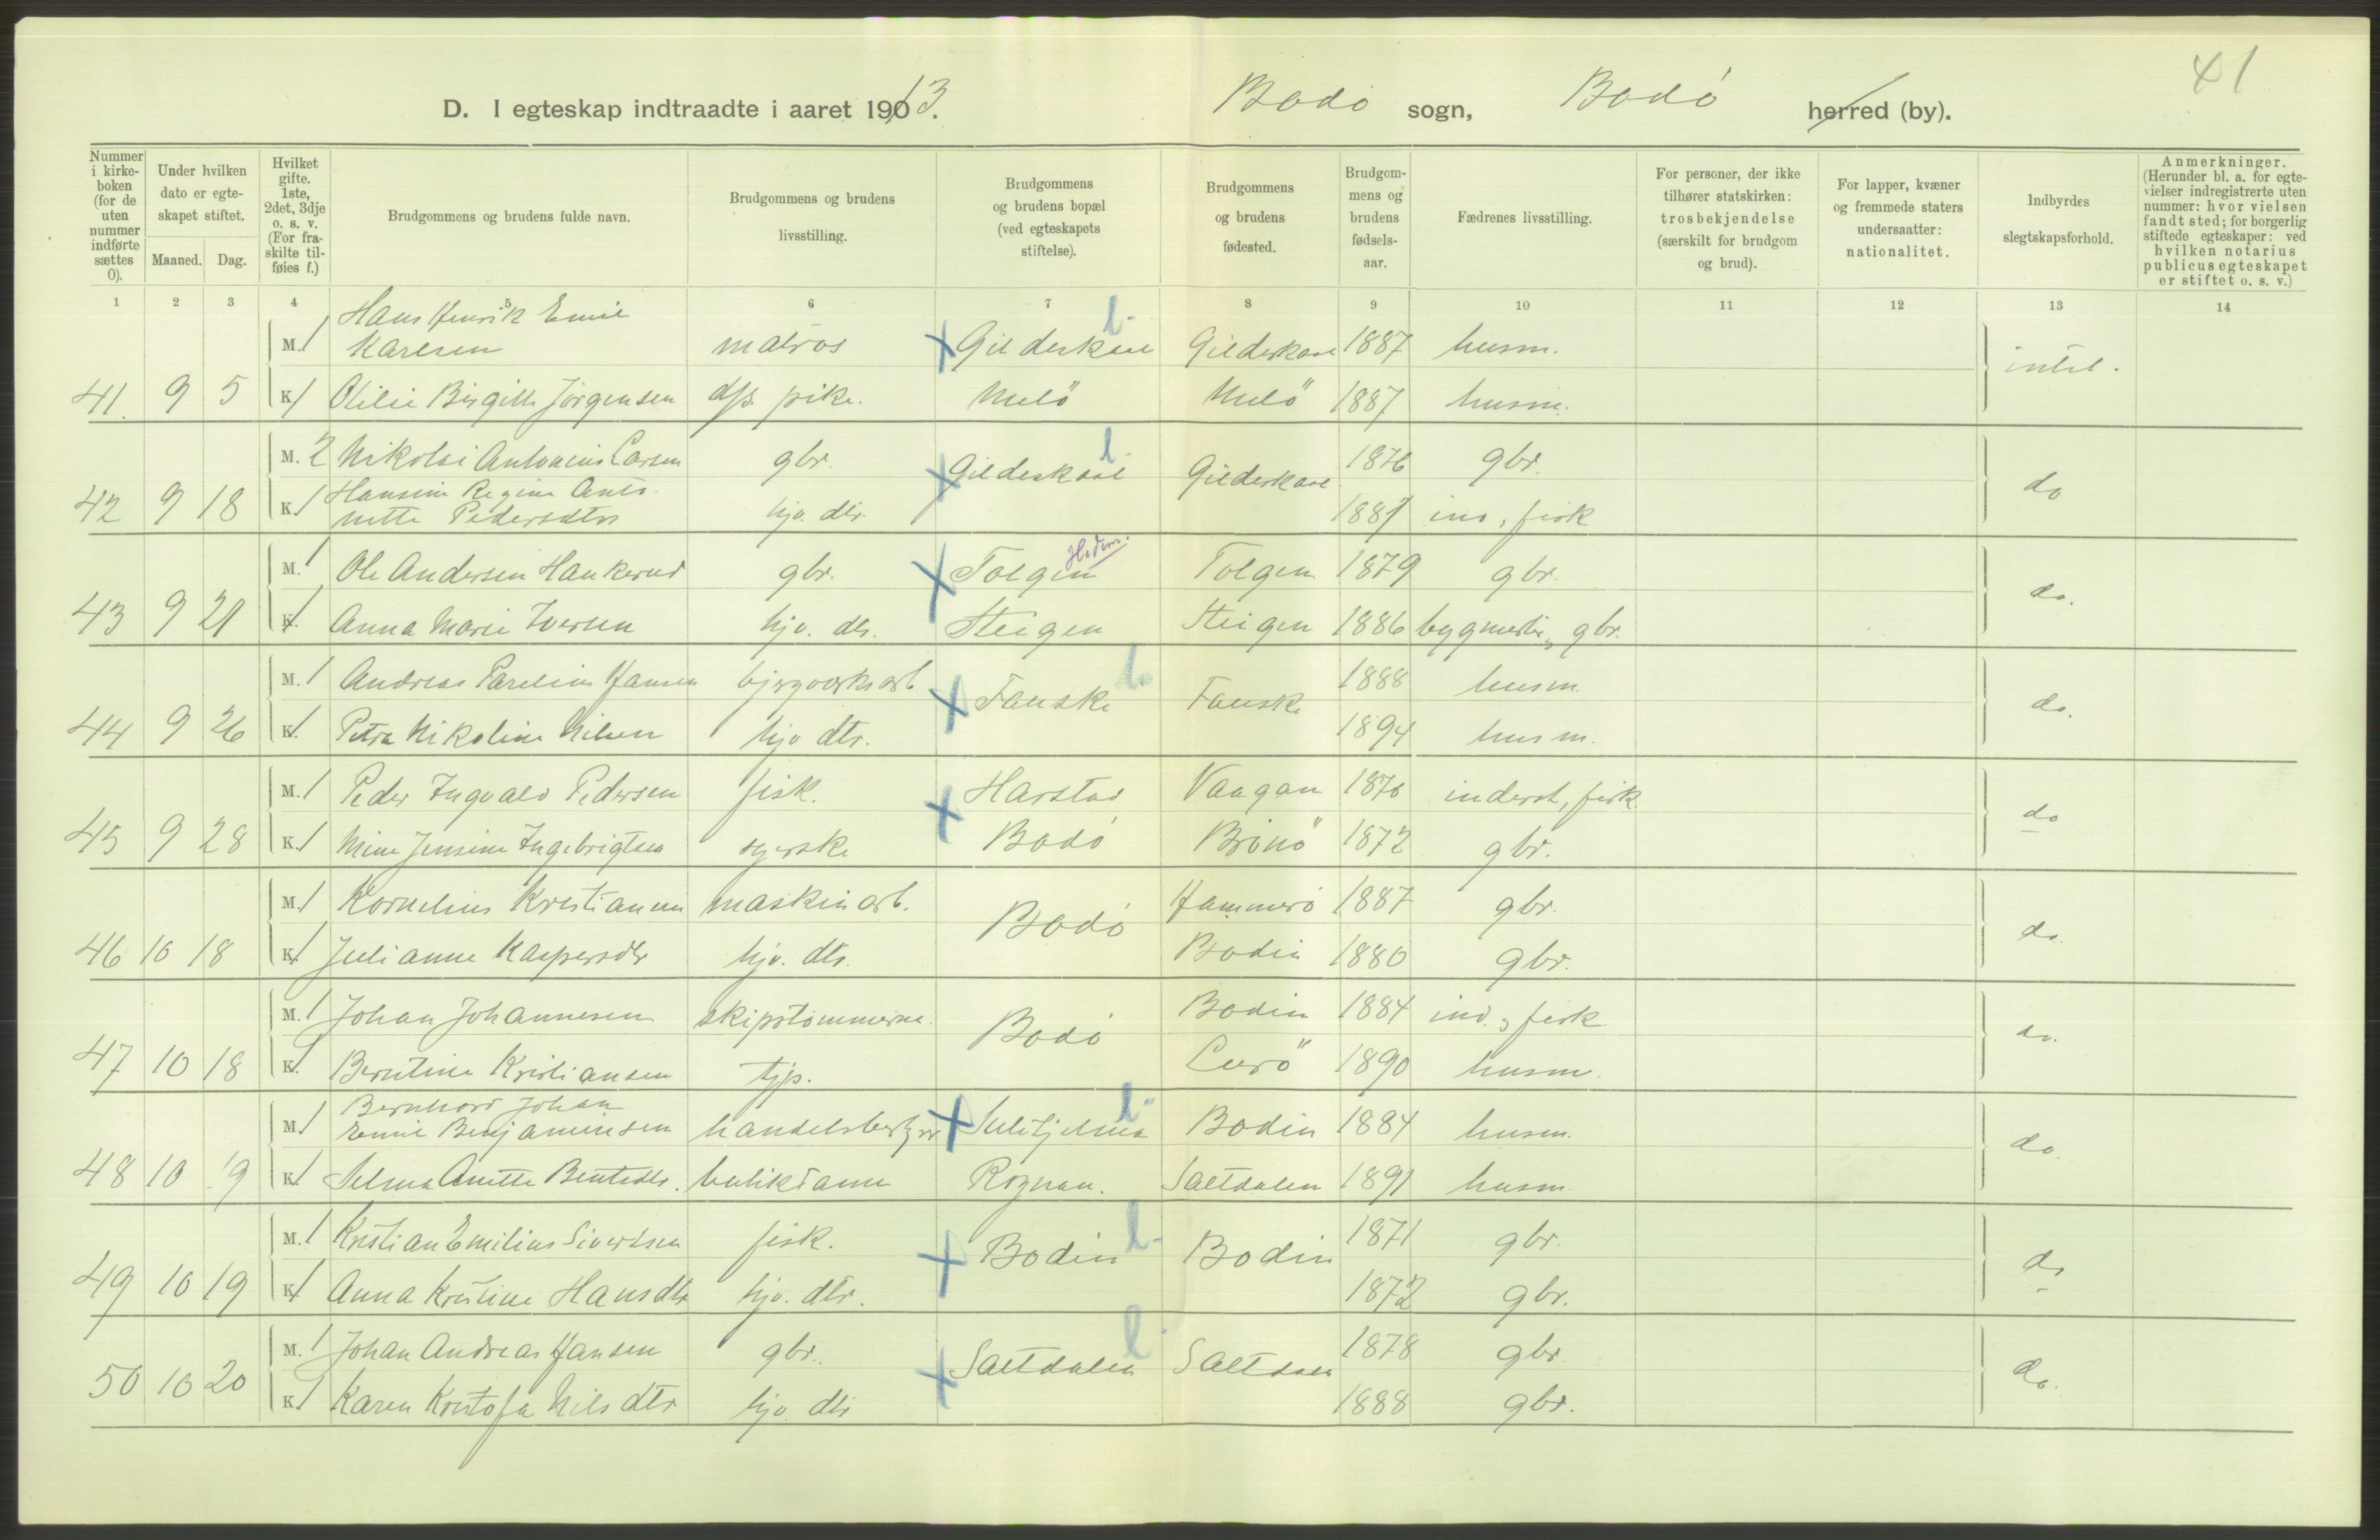 41
D. I egteskap indtraadte i aaret 1913. Bodø sogn, Bodø herred (by).
Nummer i kirkeboken (for de uten nummer indførte sættes 0).
Under hvilken dato er egteskapet stiftet.
Maaned. Dag.
Hvilket gifte. 1ste, 2det, 3dje o. s. v. (For fraskilte tilføies f.)
Brudgommens og brudens fulde navn.
Brudgommens og brudens livsstilling.
Brudgommens og brudens bopæl (ved egteskapets stiftelse).
Brudgommens og brudens fødested.
Brudgommens og brudens fødselsaar.
Fædrenes livsstilling.
For personer, der ikke tilhører statskirken: trosbekjendelse (særskilt for brudgom og brud).
For lapper, kvæner og fremmede staters undersaatter: nationalitet.
Indbyrdes slegtskapsforhold.
Anmerkninger. (Herunder bl. a. for egtevielser indregistrerte uten nummer: hvor vielsen fandt sted; for borgerlig stiftede egteskaper: ved hvilken notarius publicus egteskapet er stiftet o. s. v.)
1 2 3 4 5 6 7 8 9 10 11 12 13 14
M. 1 Hans Henrik Emil Karlsen matros Gildeskaal Gildeskaal 1887 husm. intet.
41. 9 5 K. 1 Olilie Birgitte Jörgensen pike. Melö Melö 1887 husm.
M. 2 Nikolai Antonius Larsen gbr. Gildeskaal Gildeskaal 1876 gbr. do
42 9 18 K. 1 Hansine Regine Antonette Pedersdtr hjv. dtr. 1887 ind., fisk
M. 1 Ole Andersen gbr. Tolgen Hedm. Tolgen 1879 gbr. do.
43 9 21 K. 1 Anna Marie Iversen hjv. dtr. Steigen Steigen 1886 bygmester, gbr.
M. 1 Andreas Parelius Hansen bjergverksarb. Fauske Fauske 1888 husm. do.
44 9 26 K. 1 Petra Nikoline Nilsen hjv dtr. 1894 husm.
M. 1 Peder Ingvald Pedersen fisk. Harstad Vaagan 1876 inderst, fisk. do
45 9 28 K. 1 Mine Jensine Ingebrigtsen syerske Bodö Brönö 1872 gbr.
M. 1 Kornelius Kristiansen maskinarb. Bodó Hammerö 1887 gbr. do.
46 10 18 K. 1 Julianne Kaspersdtr hjv. dtr. Bodin 1880 gbr.
M. 1 Johan Johannesen skipstömmerm. Bodó Bodin 1884 ind., fisk do.
47 10 18 K. 1 Berntine Kristiansen tjp. Lurö 1890 husm.
M. 1 Bernhard Johan Emil Benjaminsen handelsbestyrer Sulitjelma Bodin 1884 husm. do.
48 10 19 K. 1 Selma Anette Bentsdtr. butikdame Rognan. Saltdalen 1891 husm.
M. 1 Kristian Emilius Sivertsen fisk. Bodin Bodin 1871 gbr. do
49 10 19 K. 1 Anna Kristine Hansdtr hjv. dtr. 1872 gbr.
M. 1 Johan Andreas Hansen gbr. Saltdalen Saltdalen 1878 gbr. do.
50 10 20 K. 1 Karen Kristofa Nilsdtr hjv. dtr 1888 gbr.